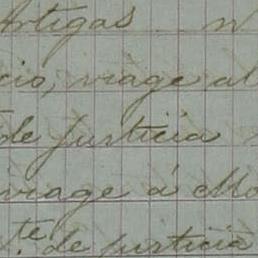 Artigas n
cio, viage al
de justicia
viage á Mo
te de justicia